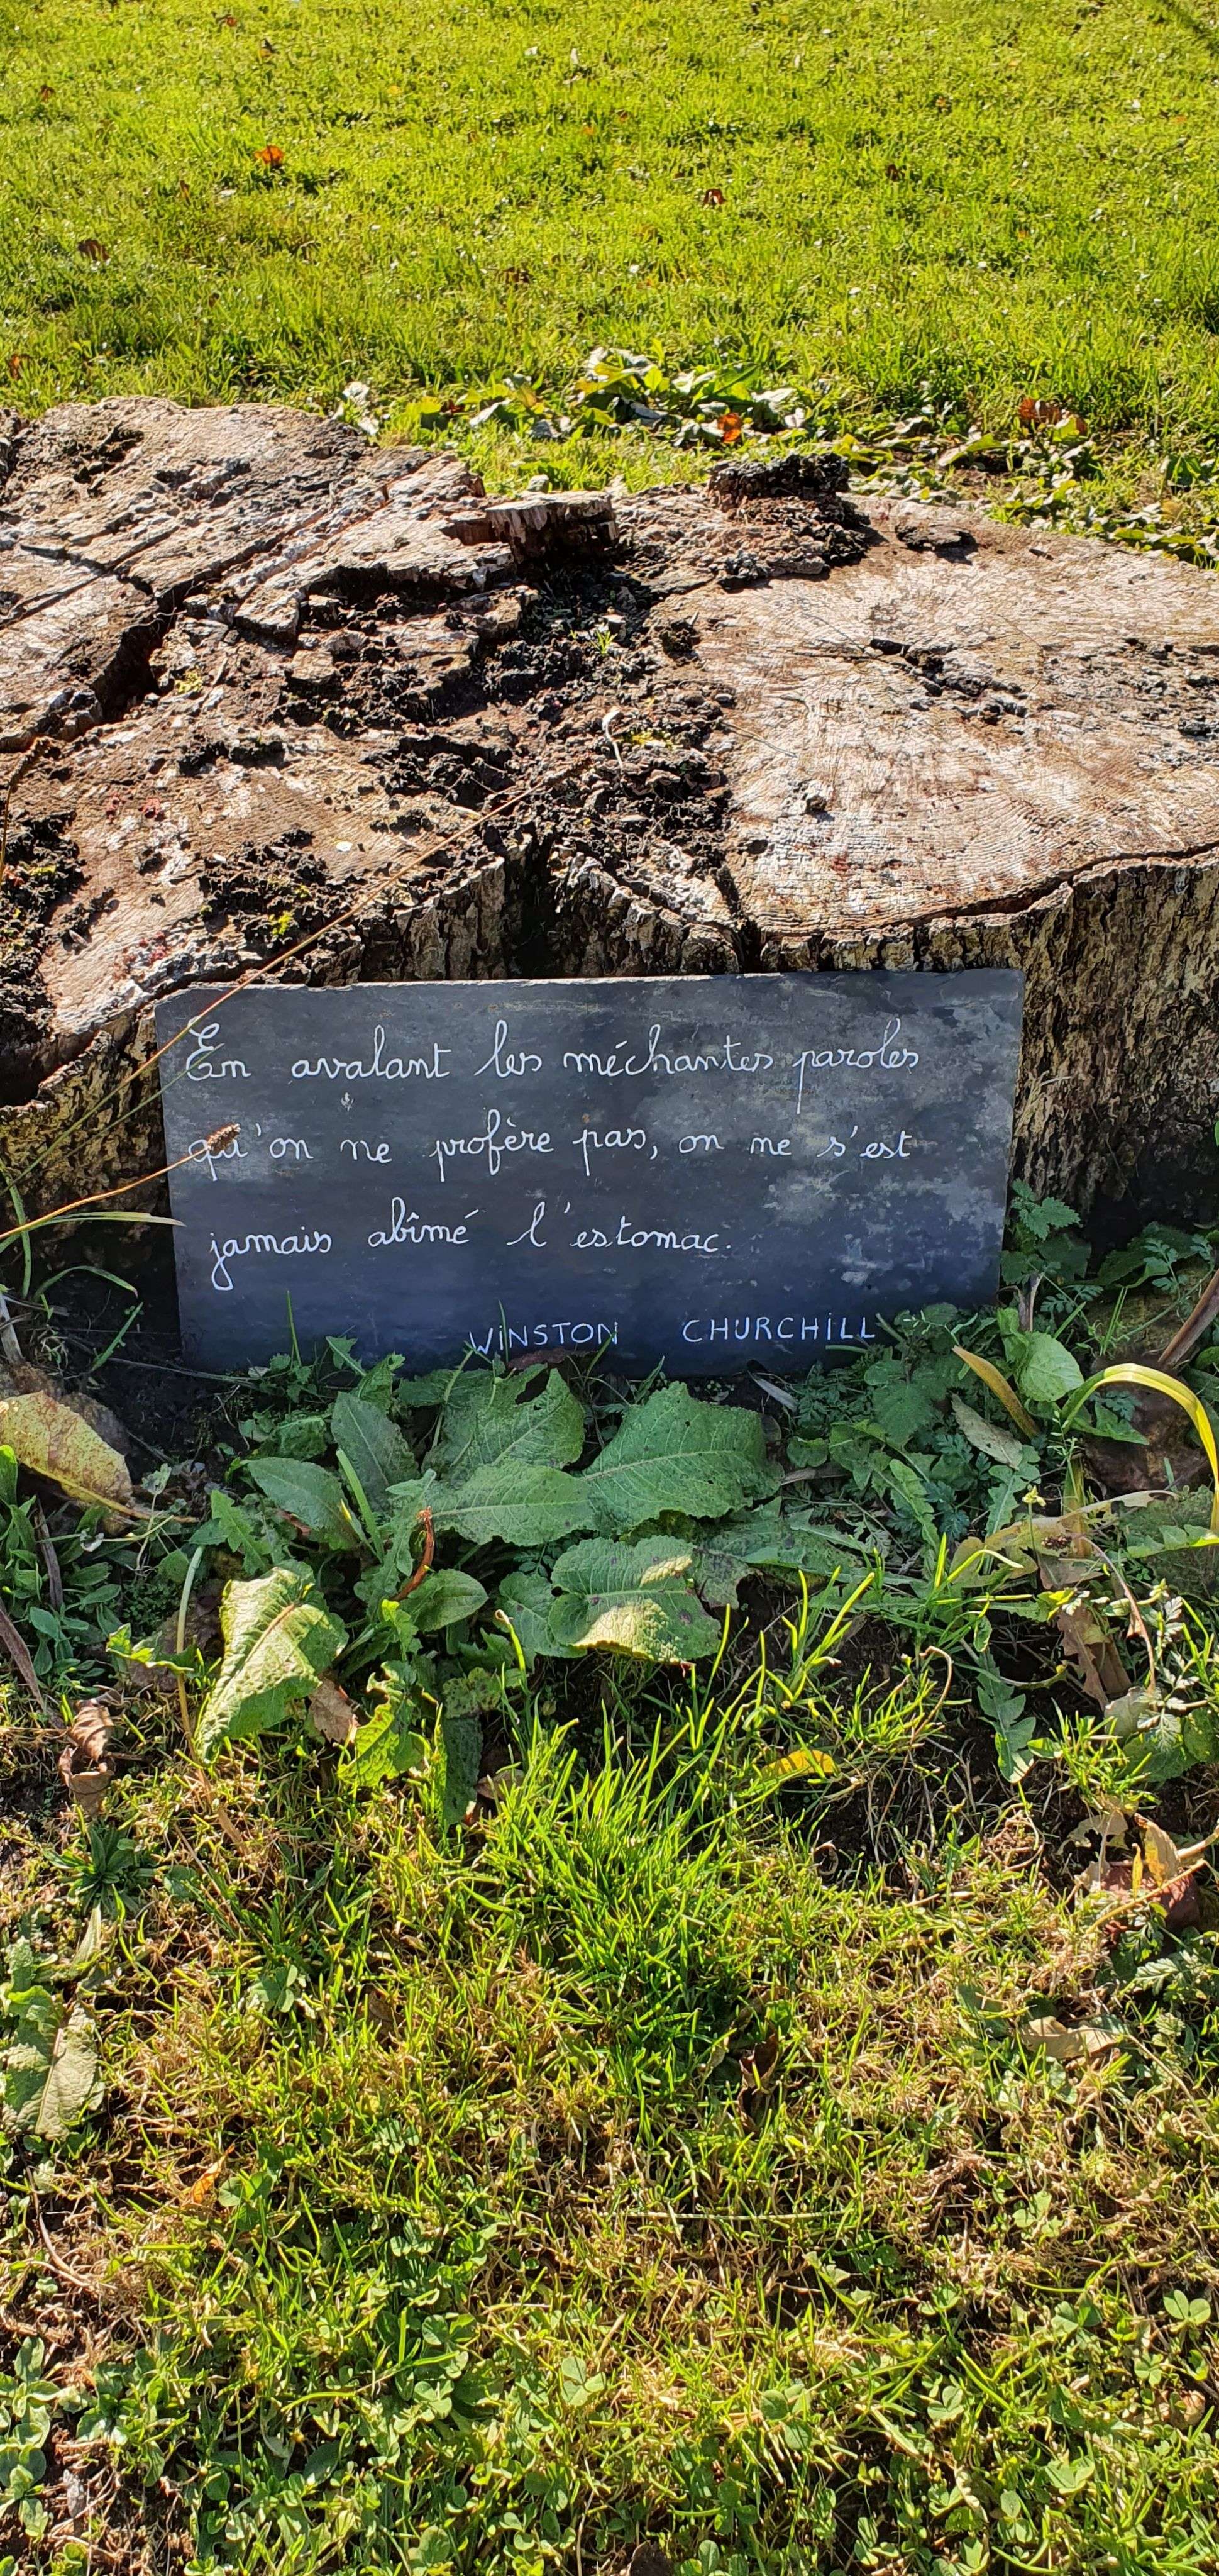 En avalant les méchantes paroles
qu'on ne profère pas, on ne s'est
jamais abîmé l'estomac.
WINSTON CHURCHILL